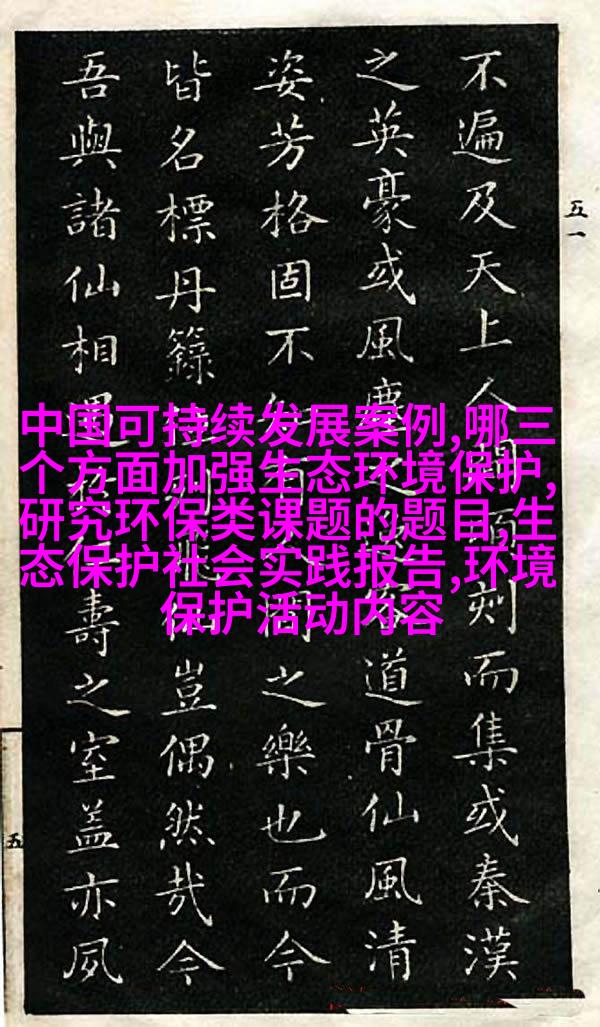 五一
不遍及天上人間頃刻而集或秦漢
之英豪或風塵之客道骨仙風清
姿芳格固不有間之樂也而今
皆名標丹籙列豈偶然哉今
吾與諸仙相遇壽之室蓋亦夙
五
中国可持续发展案例,哪三
个方面加强生态环境保护,
研究环保类课题的题目,生
态保护社会实践报告,环境
保护活动内容